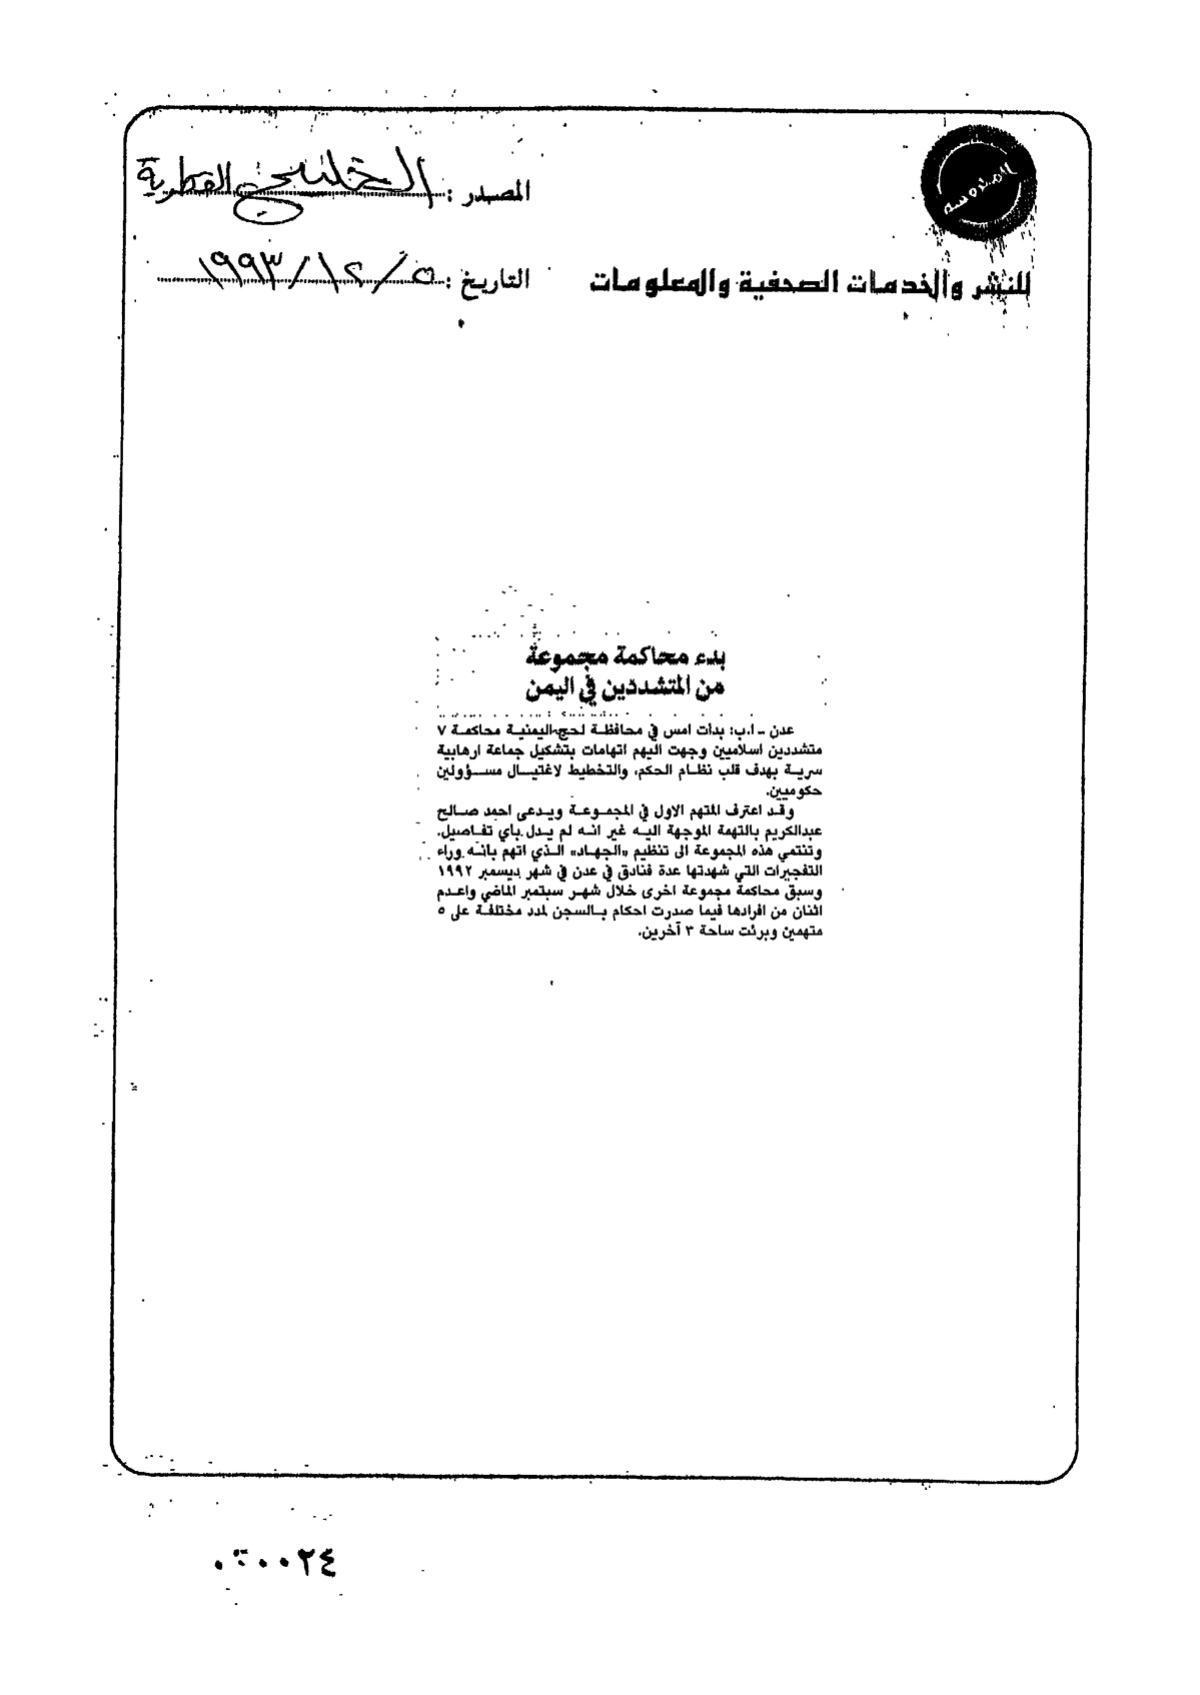 المصدر : الخليج القطرية
للنشر والخدمات الصحفية والمعلومات
التاريخ : ٥ / ١٢ / ١٩٩٣
بدء محاكمة مجموعة
من المتشددين في اليمن
عدن ــ ا.ب: بدات امس في محافظة لحج اليمنية محاكمة ٧
متشددين اسلاميين وجهت اليهم اتهامات بتشكيل جماعة ارهابية
سرية بهدف قلب نظام الحكم، والتخطيط لاغتيال مسؤولين
حكوميين.
وقد اعترف المتهم الاول في المجموعة ويدعى احمد صالح
عبدالكريم بالتهمة الموجهة اليه غير انه لم يدل باي تفاصيل.
وتنتمي هذه المجموعة الى تنظيم «الجهاد» الذي اتهم بانه وراء
التفجيرات التي شهدتها عدة فنادق في عدن في شهر ديسمبر ١٩٩٢
وسبق محاكمة مجموعة اخرى خلال شهر سبتمبر الماضي واعدم
اثنان من افرادها فيما صدرت احكام بالسجن لمدد مختلفة على ٥
متهمين وبرئت ساحة ٣ آخرين.